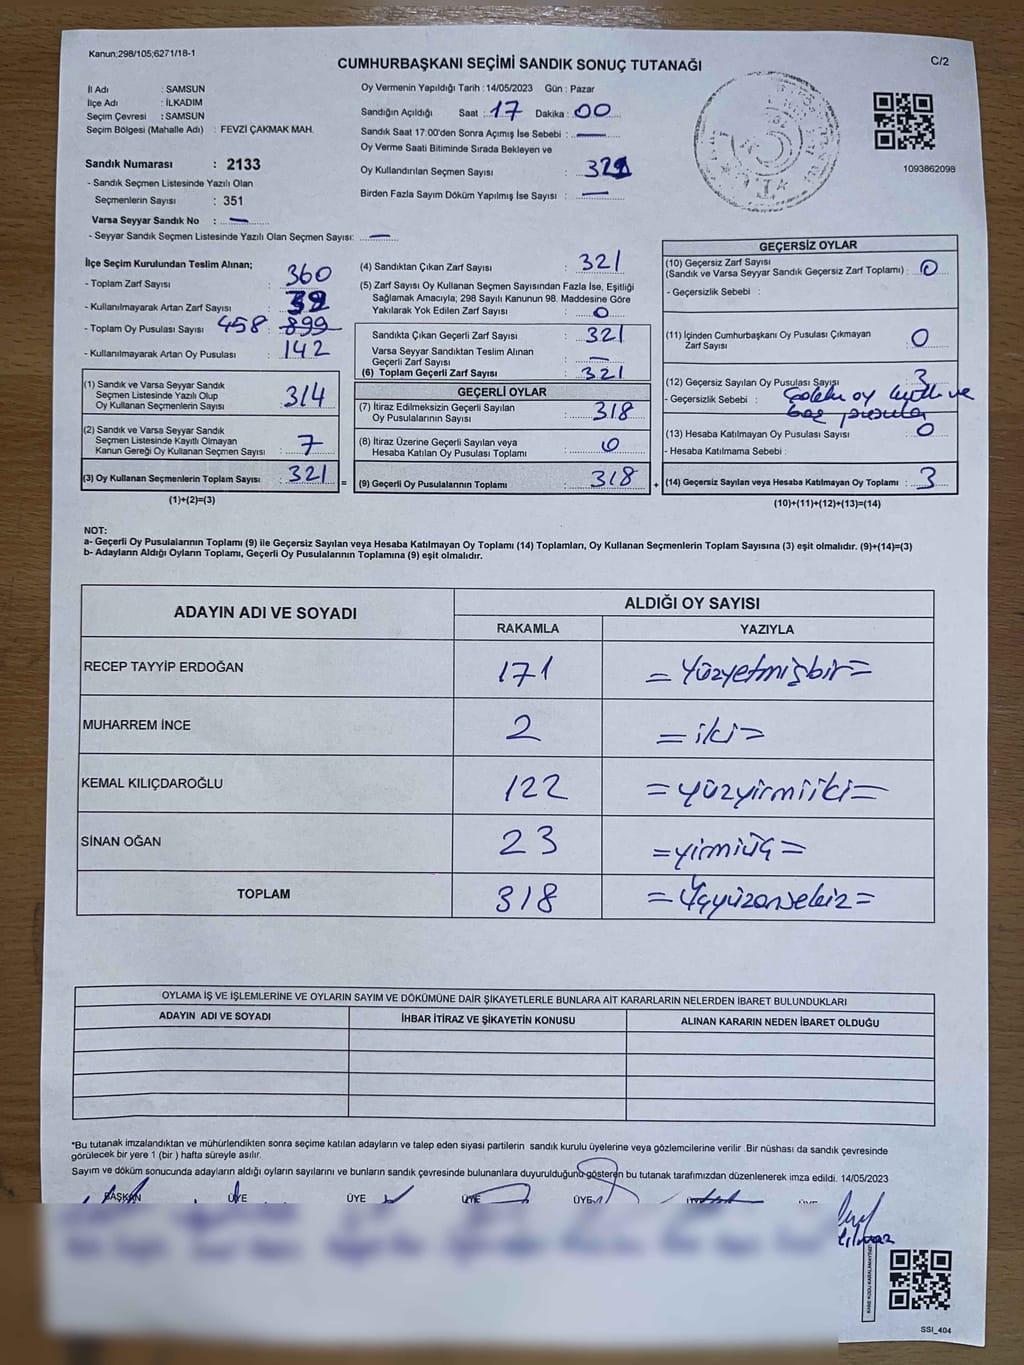 Kanun;298/105;6271/18-1
C/2
CUMHURBAŞKANI SEÇİMİ SANDIK SONUÇ TUTANAĞI
İl Adı : SAMSUN
İlçe Adı : İLKADIM
Seçim Çevresi : SAMSUN
Seçim Bölgesi (Mahalle Adı) : FEVZİ ÇAKMAK MAH.
Sandık Numarası : 2133
- Sandık Seçmen Listesinde Yazılı Olan
Seçmenlerin Sayısı : 351
Varsa Seyyar Sandık No : —
- Seyyar Sandık Seçmen Listesinde Yazılı Olan Seçmen Sayısı: —
Oy Vermenin Yapıldığı Tarih : 14/05/2023 Gün : Pazar
Sandığın Açıldığı Saat : 17 Dakika : 00
Sandık Saat 17:00'den Sonra Açımış İse Sebebi : —
Oy Verme Saati Bitiminde Sırada Bekleyen ve
Oy Kullandırılan Seçmen Sayısı : 321
Birden Fazla Sayım Döküm Yapılmış İse Sayısı : —
1093862098
İlçe Seçim Kurulundan Teslim Alınan;
- Toplam Zarf Sayısı : 360
- Kullanılmayarak Artan Zarf Sayısı : 39
- Toplam Oy Pusulası Sayısı 458 : 899
- Kullanılmayarak Artan Oy Pusulası : 142
(1) Sandık ve Varsa Seyyar Sandık
Seçmen Listesinde Yazılı Olup
Oy Kullanan Seçmenlerin Sayısı : 314
(2) Sandık ve Varsa Seyyar Sandık
Seçmen Listesinde Kayıtlı Olmayan
Kanun Gereği Oy Kullanan Seçmen Sayısı : 7
(3) Oy Kullanan Seçmenlerin Toplam Sayısı : 321 =
(1)+(2)=(3)
(4) Sandıktan Çıkan Zarf Sayısı : 321
(5) Zarf Sayısı Oy Kullanan Seçmen Sayısından Fazla İse, Eşitliği
Sağlamak Amacıyla; 298 Sayılı Kanunun 98. Maddesine Göre
Yakılarak Yok Edilen Zarf Sayısı : 0
Sandıkta Çıkan Geçerli Zarf Sayısı : 321
Varsa Seyyar Sandıktan Teslim Alınan
Geçerli Zarf Sayısı : —
(6) Toplam Geçerli Zarf Sayısı : 321
GEÇERLİ OYLAR
(7) İtiraz Edilmeksizin Geçerli Sayılan
Oy Pusulalarının Sayısı : 318
(8) İtiraz Üzerine Geçerli Sayılan veya
Hesaba Katılan Oy Pusulası Toplamı : 0
(9) Geçerli Oy Pusulalarının Toplamı : 318 +
GEÇERSİZ OYLAR
(10) Geçersiz Zarf Sayısı
(Sandık ve Varsa Seyyar Sandık Geçersiz Zarf Toplamı) : 0
- Geçersizlik Sebebi :
(11) İçinden Cumhurbaşkanı Oy Pusulası Çıkmayan
Zarf Sayısı : 0
(12) Geçersiz Sayılan Oy Pusulası Sayısı : 3
- Geçersizlik Sebebi : oy ve
boş
(13) Hesaba Katılmayan Oy Pusulası Sayısı : 0
- Hesaba Katılmama Sebebi :
(14) Geçersiz Sayılan veya Hesaba Katılmayan Oy Toplamı : 3
(10)+(11)+(12)+(13)=(14)
NOT:
a- Geçerli Oy Pusulalarının Toplamı (9) ile Geçersiz Sayılan veya Hesaba Katılmayan Oy Toplamı (14) Toplamları, Oy Kullanan Seçmenlerin Toplam Sayısına (3) eşit olmalıdır. (9)+(14)=(3)
b- Adayların Aldığı Oyların Toplamı, Geçerli Oy Pusulalarının Toplamına (9) eşit olmalıdır.
ADAYIN ADI VE SOYADI ALDIĞI OY SAYISI
RAKAMLA YAZIYLA
RECEP TAYYİP ERDOĞAN 171 = Yüzyetmişbir =
MUHARREM İNCE 2 = iki =
KEMAL KILIÇDAROĞLU 122 = yüzyirmiiki =
SİNAN OĞAN 23 = yirmiüç =
TOPLAM 318 = Üçyüzonsekiz =
OYLAMA İŞ VE İŞLEMLERİNE VE OYLARIN SAYIM VE DÖKÜMÜNE DAİR ŞİKAYETLERLE BUNLARA AİT KARARLARIN NELERDEN İBARET BULUNDUKLARI
ADAYIN ADI VE SOYADI İHBAR İTİRAZ VE ŞİKAYETİN KONUSU ALINAN KARARIN NEDEN İBARET OLDUĞU
*Bu tutanak imzalandıktan ve mühürlendikten sonra seçime katılan adayların ve talep eden siyasi partilerin sandık kurulu üyelerine veya gözlemcilerine verilir .Bir nüshası da sandık çevresinde
görülecek bir yere 1 (bir ) hafta süreyle asılır.
Sayım ve döküm sonucunda adayların aldığı oyların sayılarını ve bunların sandık çevresinde bulunanlara duyurulduğunu gösteren bu tutanak tarafımızdan düzenlenerek imza edildi. 14/05/2023
BAŞKAN ÜYE ÜYE ÜYE ÜYE
SSİ_404